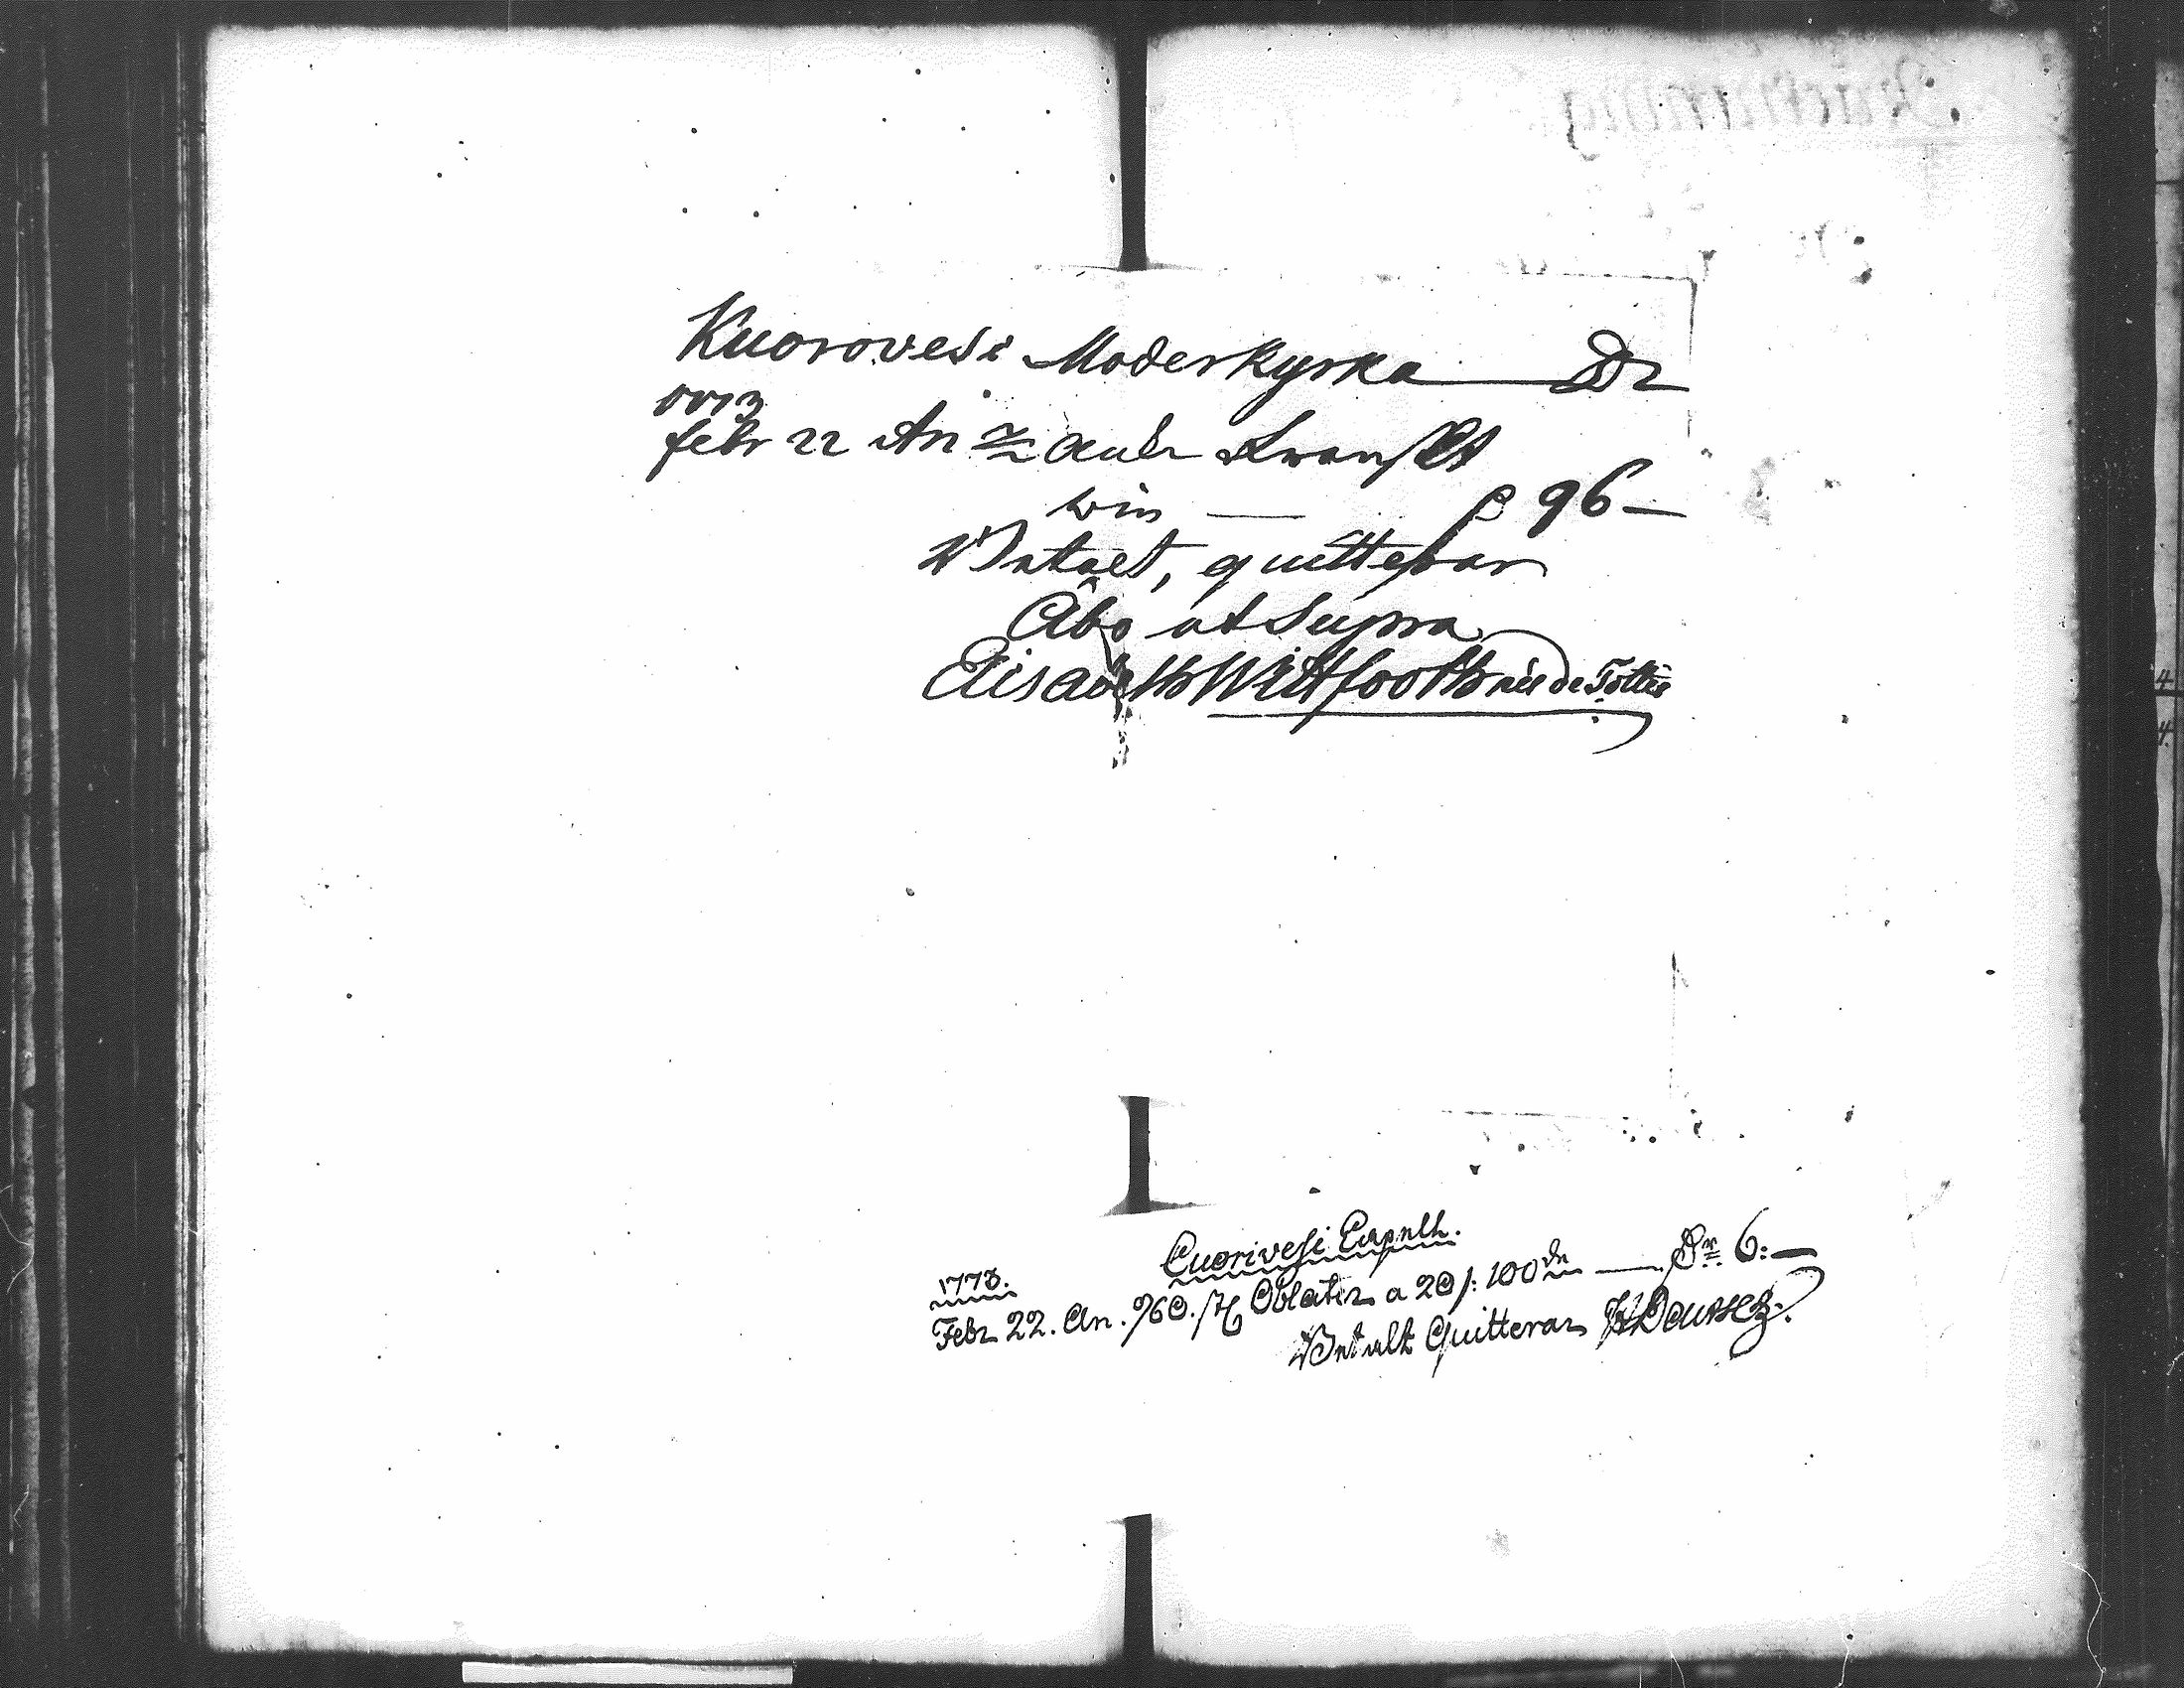 Kuorovesi Moderkyrka Dr
1773
febr 22 An 2 ankr Franskt
win — 96 —
Betalt, quitterar
Åbo ut Supra
Elisabeth Wittfooth née de Tottie
Cuorivesi Capell.
1773.
Febr 22. An. 960. st Oblater a 20/: 100de — Dr 6:—
Betalt Quitterar